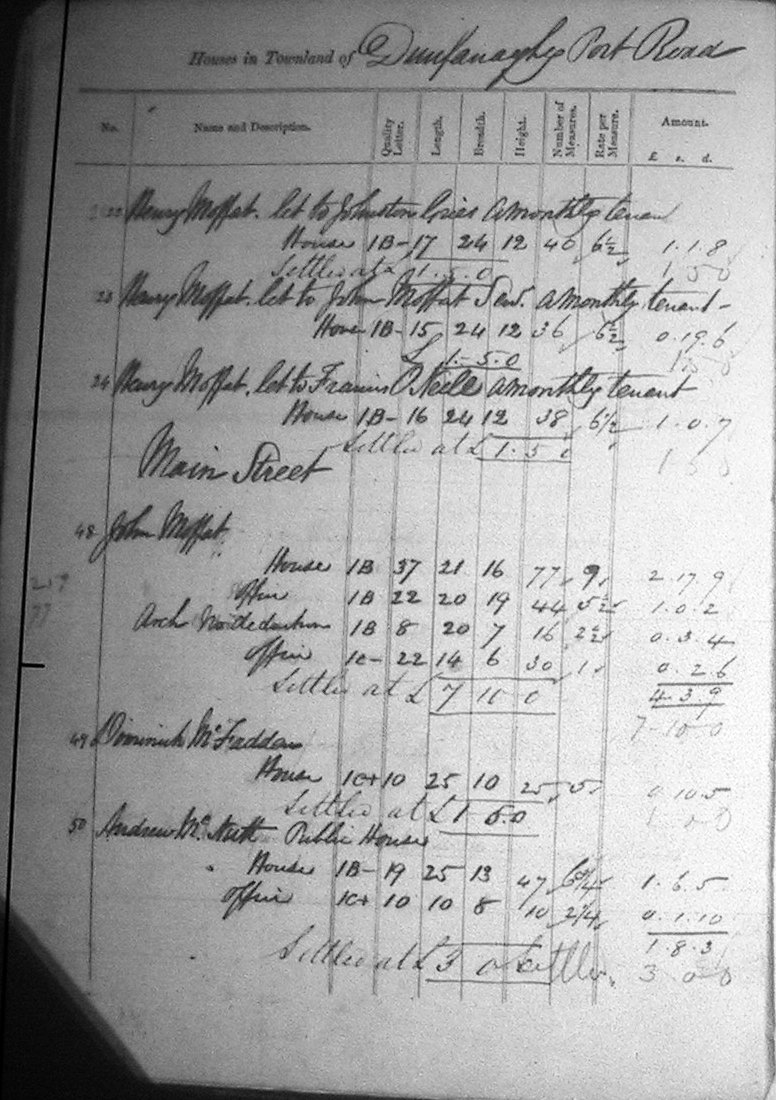 Houses in Townland of Dunfanaghy Port Road
No. Name and Description. Quality Letter. Length. Breadth. Height. Number of Measures. Rate per Measure. Amount. £ s. d.
22 Henry Moffat. let to Johnston a monthly tenan
House 1B- 17 24 12 40 6½ 1. 1. 8
Settled at £ 1. 5. 0 1 5 0
23 Henry Moffat. let to John Moffat Senr. a monthly tenant-
House 1B- 15 24 12 36 6½ 0. 19. 6
£ 1. 5. 0
24 Henry Moffat. let to Francis O'Neile a monthly tenant
House 1B- 16 24 12 38 6½ 1. 0. 7
Settled at £ 1. 5 0
Main Street
48 John Moffat
House 1B 37 21 16 77 9 2. 17. 9
Office 1B 22 20 19 44 5½ 1. 0. 2
Arch No deduction 1B 8 20 7 16 2½ 0. 3. 4
Office 1C- 22 14 6 30 1 0. 2. 6
Settled at £ 7 10 0 4. 3. 9
7-10-0
49 Dominick McFadden
House 1C+ 10 25 10 25 5 0. 10. 5
Settled at £ 1 5.0
50 Andrew McNutt Public House
House 1B- 19 25 13 47 6¾ 1. 6. 5
Office 1C+ 10 10 8 10 2¼ 0. 1. 10
1. 8. 3
Settled at £ 3 0 Settled. 3 0 0